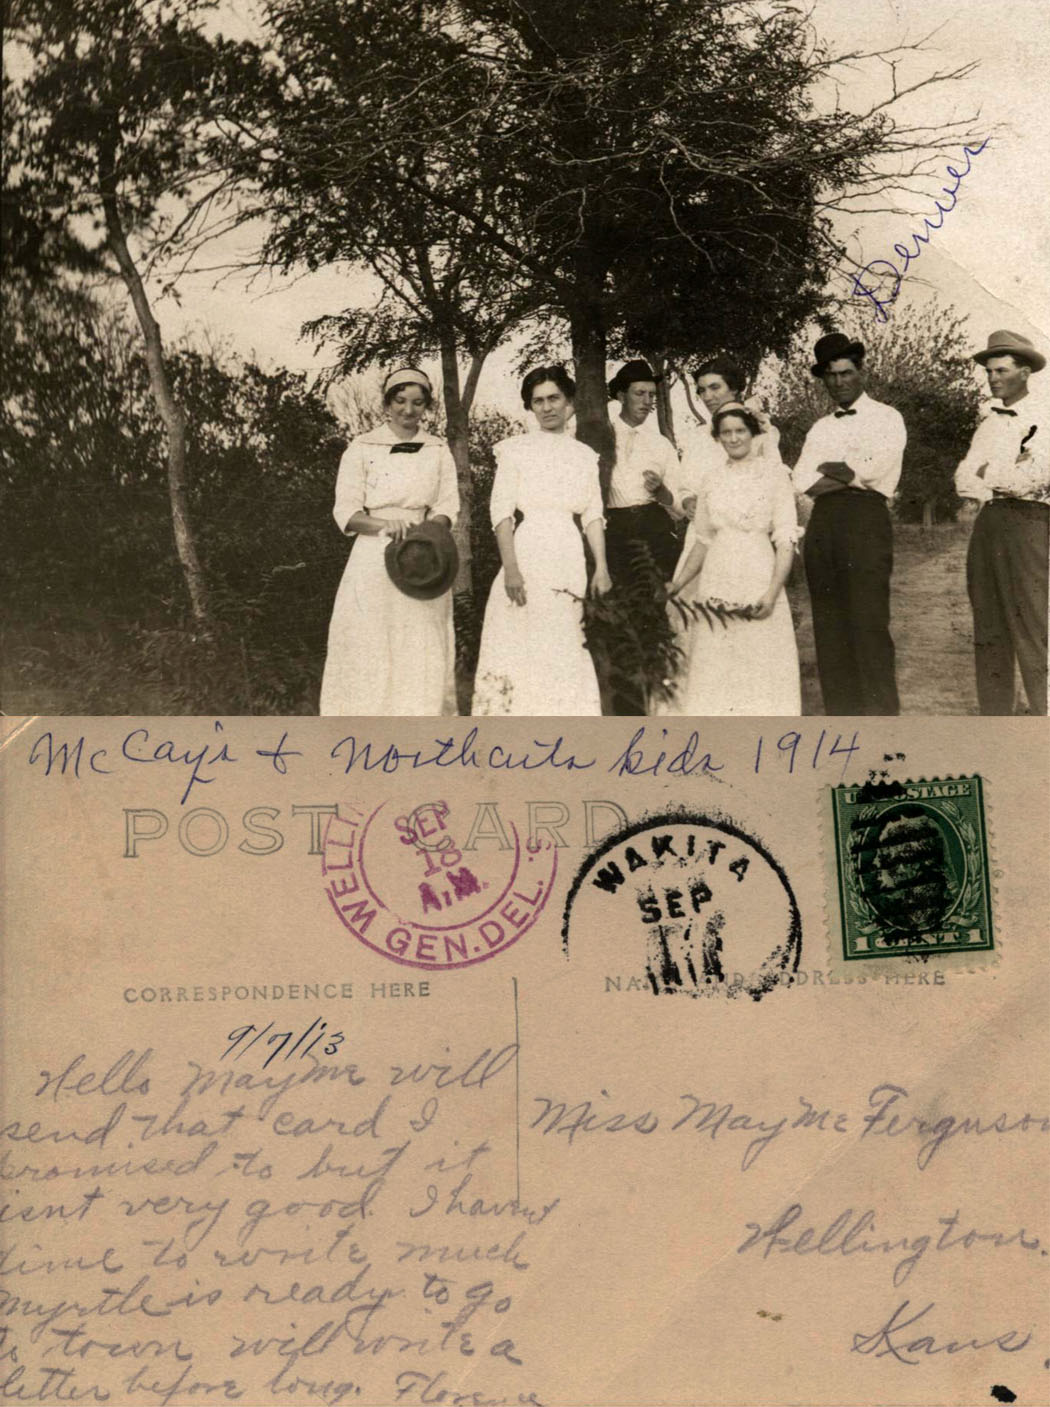 Denver
McCay's + Northcutts kids 1914
POST CARD
WELLIN
SEP
10
A.M.
GEN. DEL. S
WAKITA
SEP
U.S. POSTAGE
1 CENT 1
CORRESPONDENCE HERE
NAME AND ADDRESS HERE
9/7/13
Hello Mayme will
send that card I
promised to but it
isnt very good. I havent
time to write much
Myrtle is ready to go
to town will write a
letter before long. Florence
Miss Mayme Ferguson
Wellington.
Kans.